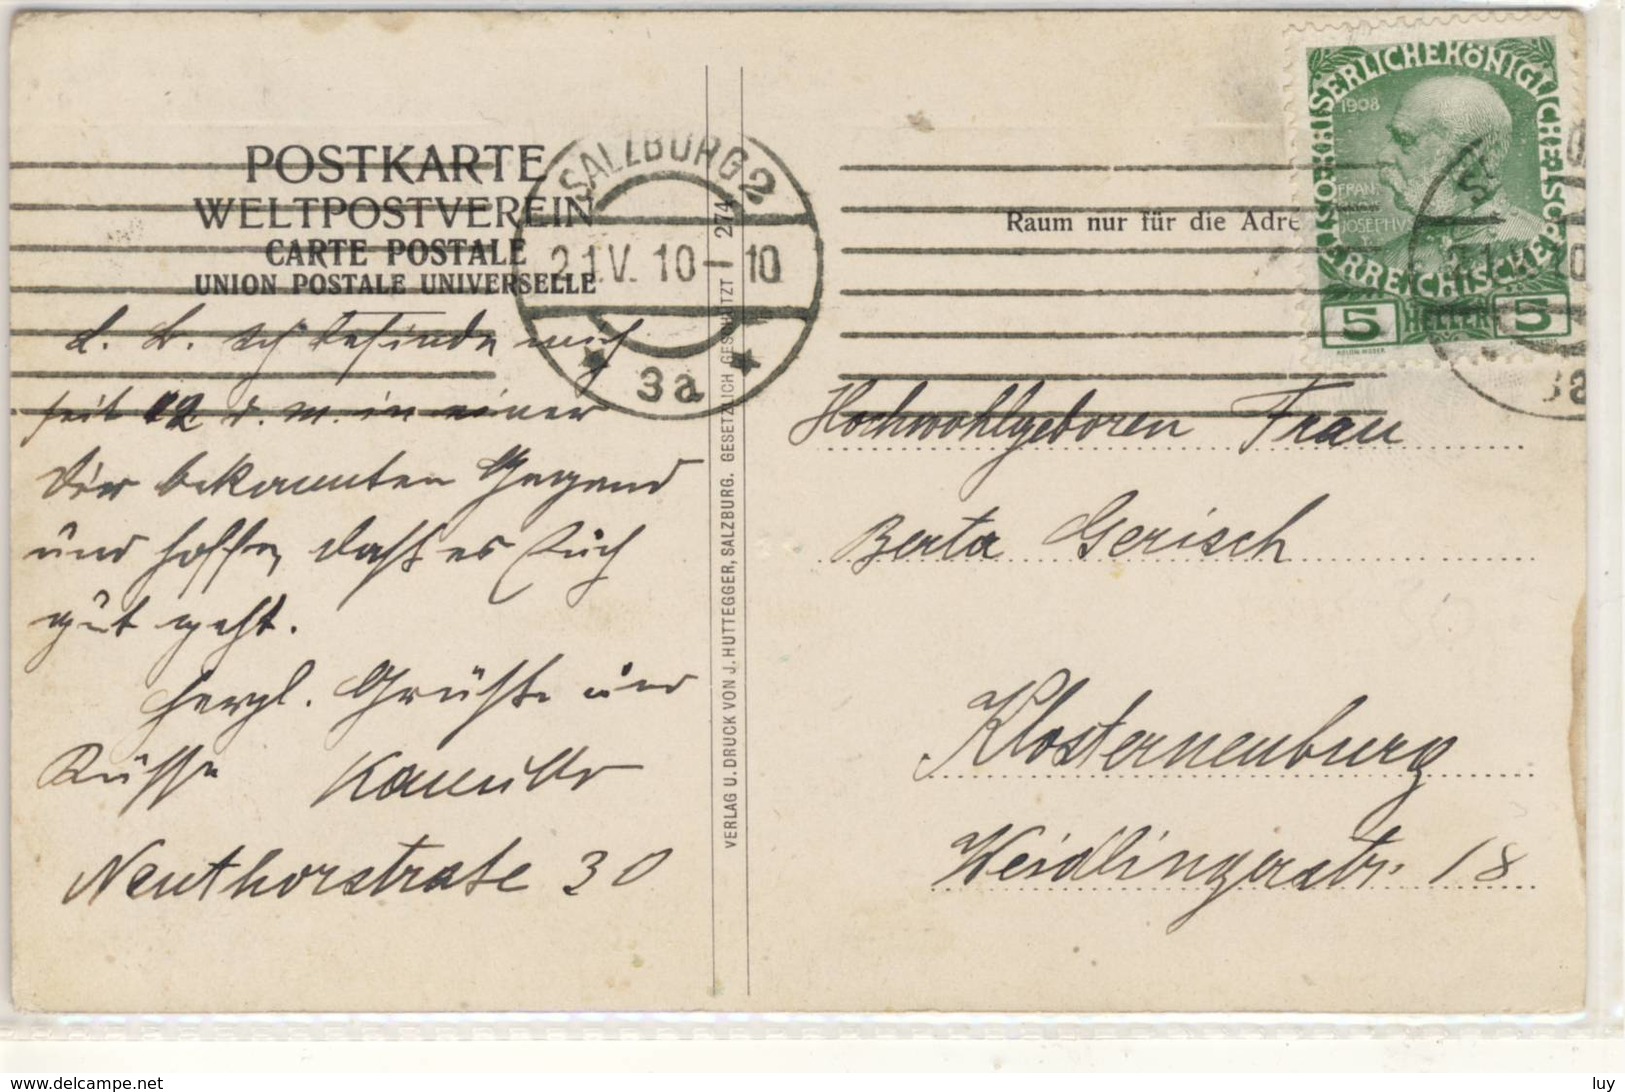 POSTKARTE
WELTPOSTVEREIN
CARTE POSTALE
UNION POSTALE UNIVERSELLE
SALZBURG 2
21.V.10-10
3a
L. B. Ich befinde mich
seit 12 d. M. in einer
Dir bekannten Gegend
und hoffe, daß es Euch
gut geht.
Herzl. Grüße und
Küsse Kamillo
Neuthorstraße 30
VERLAG U. DRUCK VON J. HUTTEGGER, SALZBURG. GESETZLICH GESCHÜTZT 274
Raum nur für die Adre
KAISERLICHEKÖNIGLICHE ÖSTERREICHISCHE POST
1908
FRANZ
JOSEPH I
5 HELLER 5
KOLOM. MOSER
3a
Hochwohlgeboren Frau
Berta Gerisch
Klosterneuburg
Weidlingerstr. 18
www.delcampe.net
luy